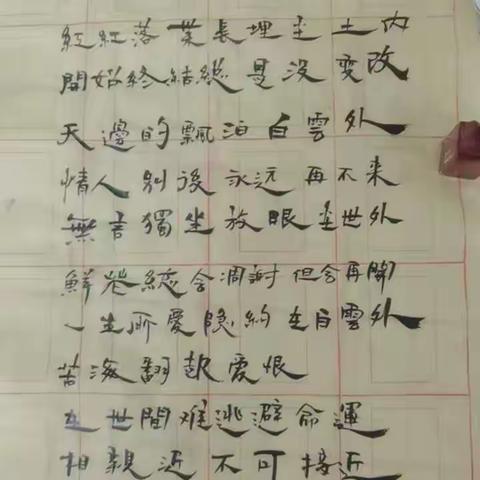 紅紅落葉長埋塵土內
開始終結總是沒變改
天邊的飄泊白雲外
情人別後永远再不来
無言獨坐放眼塵世外
鮮花總会凋謝但会再開
一生所愛隐約在白雲外
苦海翻起愛恨
在世間难逃避命運
相親近不可接近